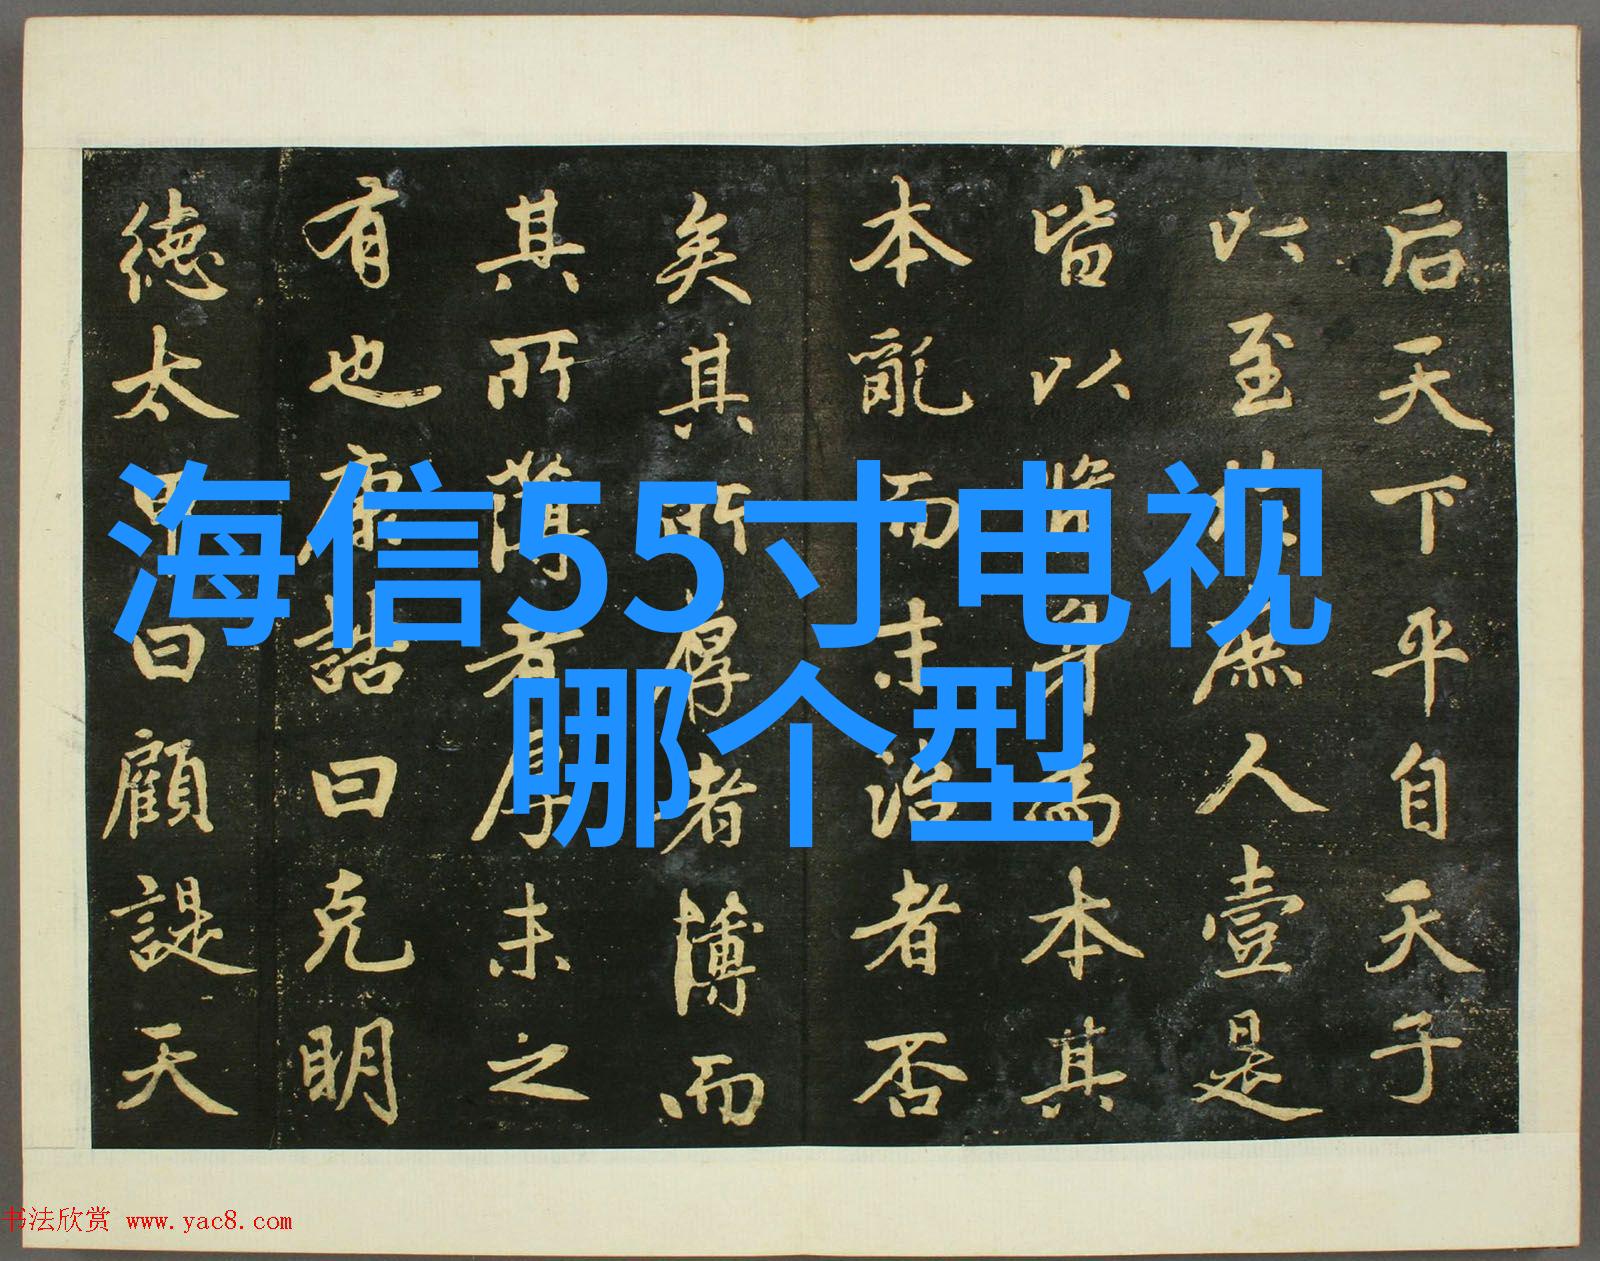 海信55寸电视
哪个型
后天下平自天子
以至於庶人壹是
皆以脩身為本其
本亂而末治者否
矣其所厚者薄而
其所薄者厚未之
有也康誥曰克明
德太甲曰顧諟天
书法欣赏 www.yac8.com